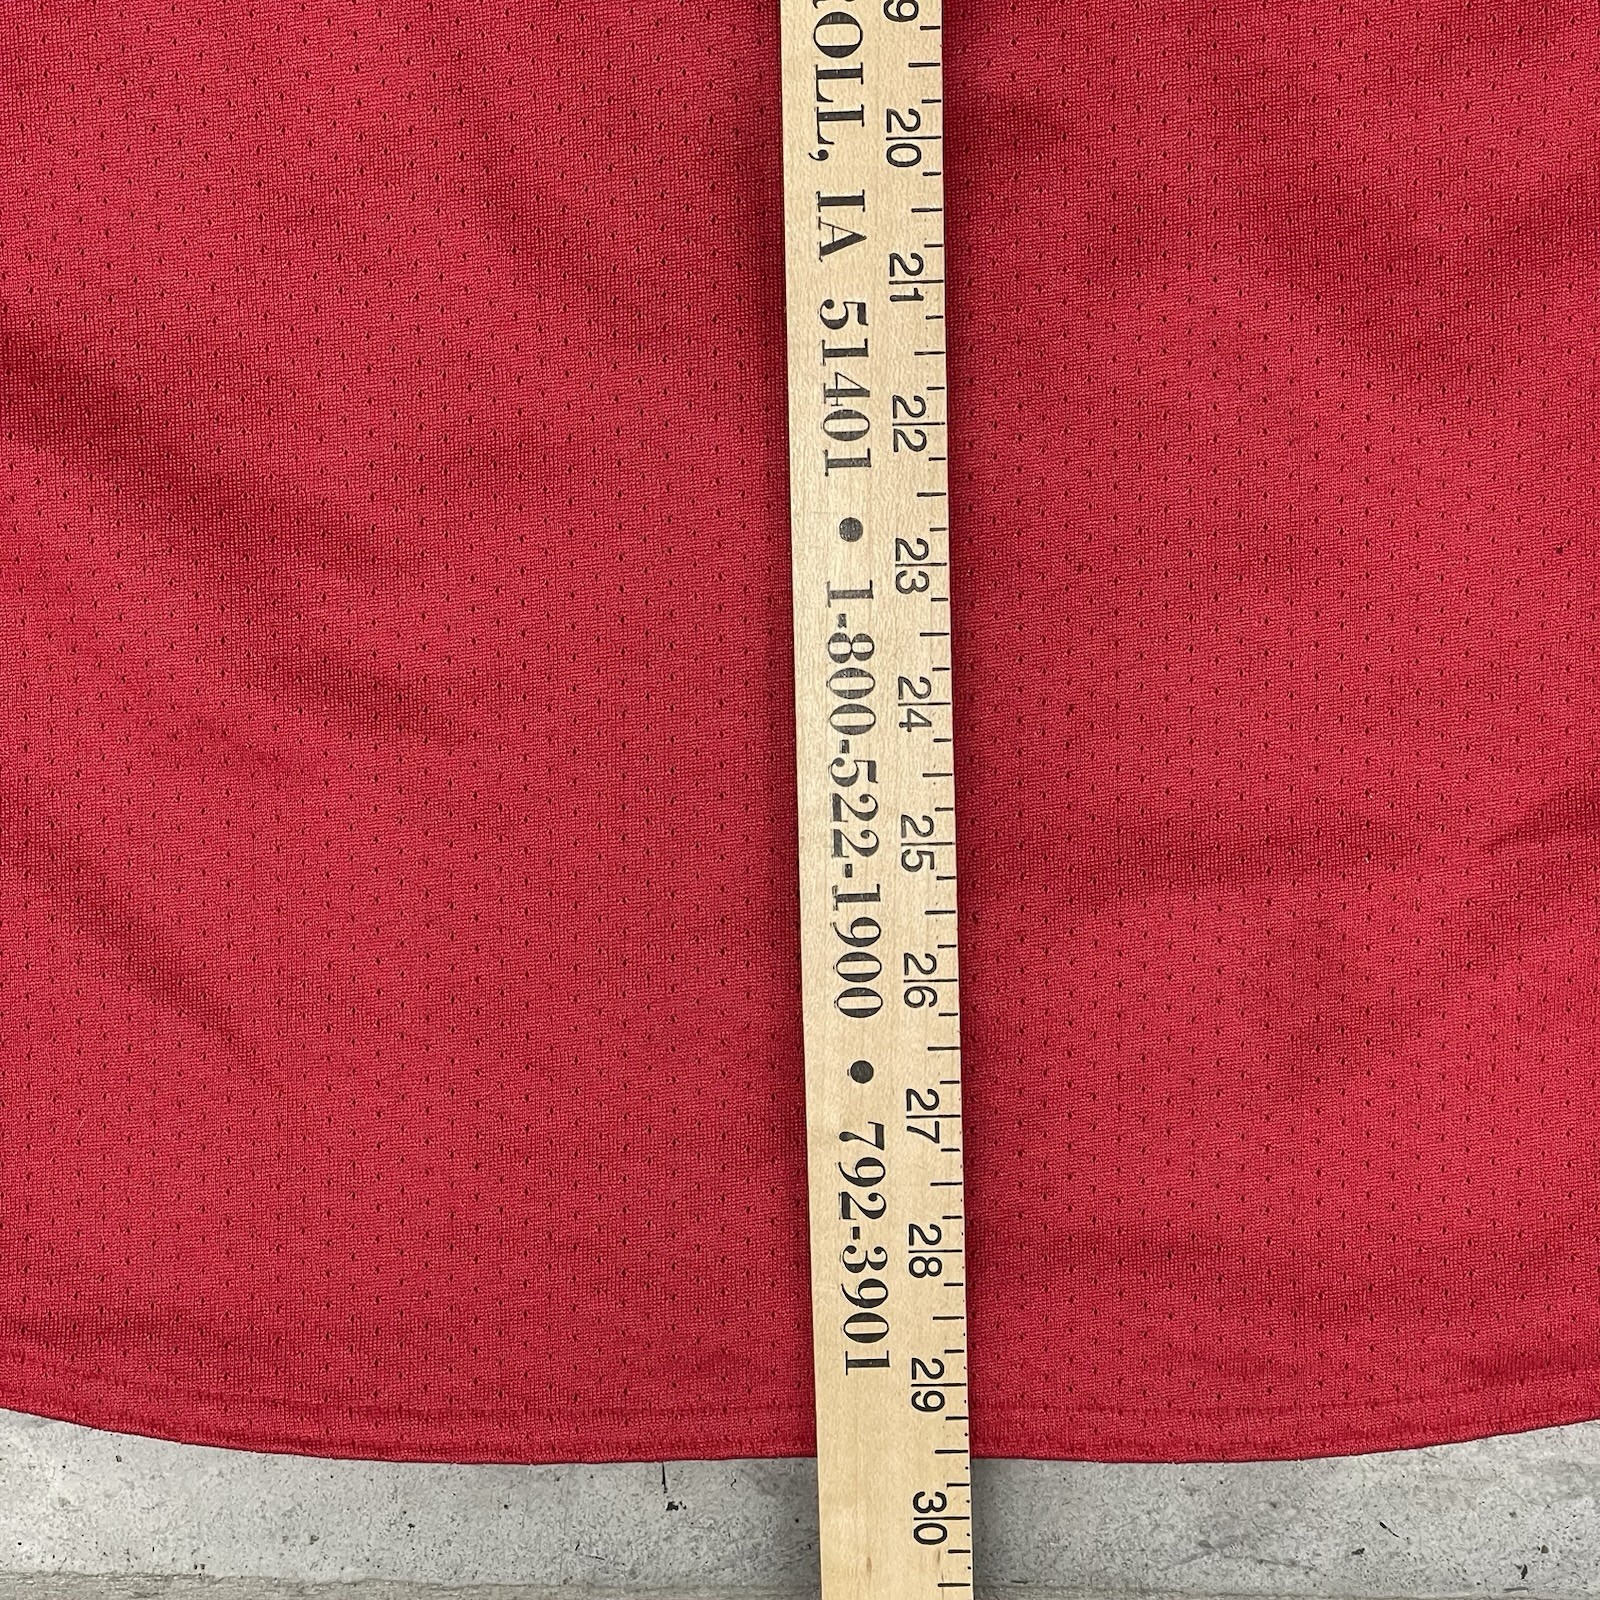 OLL, IA 51401 • 1-800-522-1900 • 792-3901
9 20 21 22 23 24 25 26 27 28 29 30